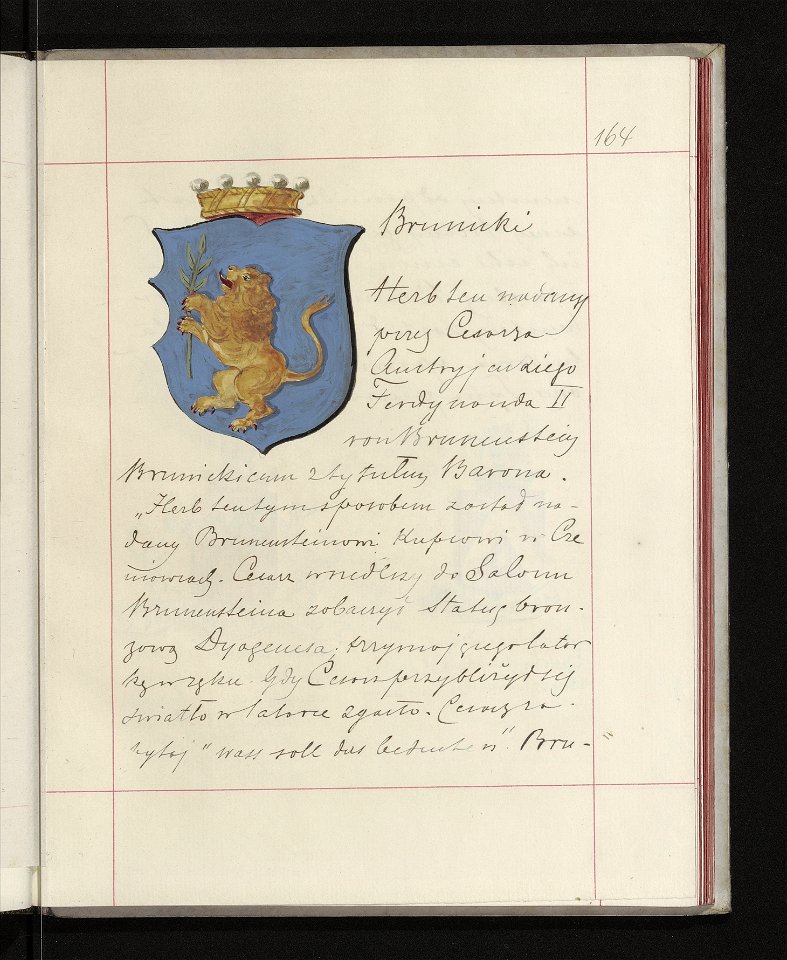 164
Brunicki
Herb ten nadany
przez Cesarza
Austryjackiego
Ferdynanda II
von Brunenstein
Brunickicum z tytułem Barona.
„Herb ten tym sposobem został na-
dany Brunensteinowi Kupcowi w Cze
niowcach. Cesarz wszedłszy do Salonu
Brunensteina zobaczył Statuę bron-
zową Dyogenesa, trzymającego latar
kę w ręku. Gdy Cesarz przybliżył się
światło w latarce zgasło. Cesarz za
pytaj "wass soll das bedeuten". Bru-